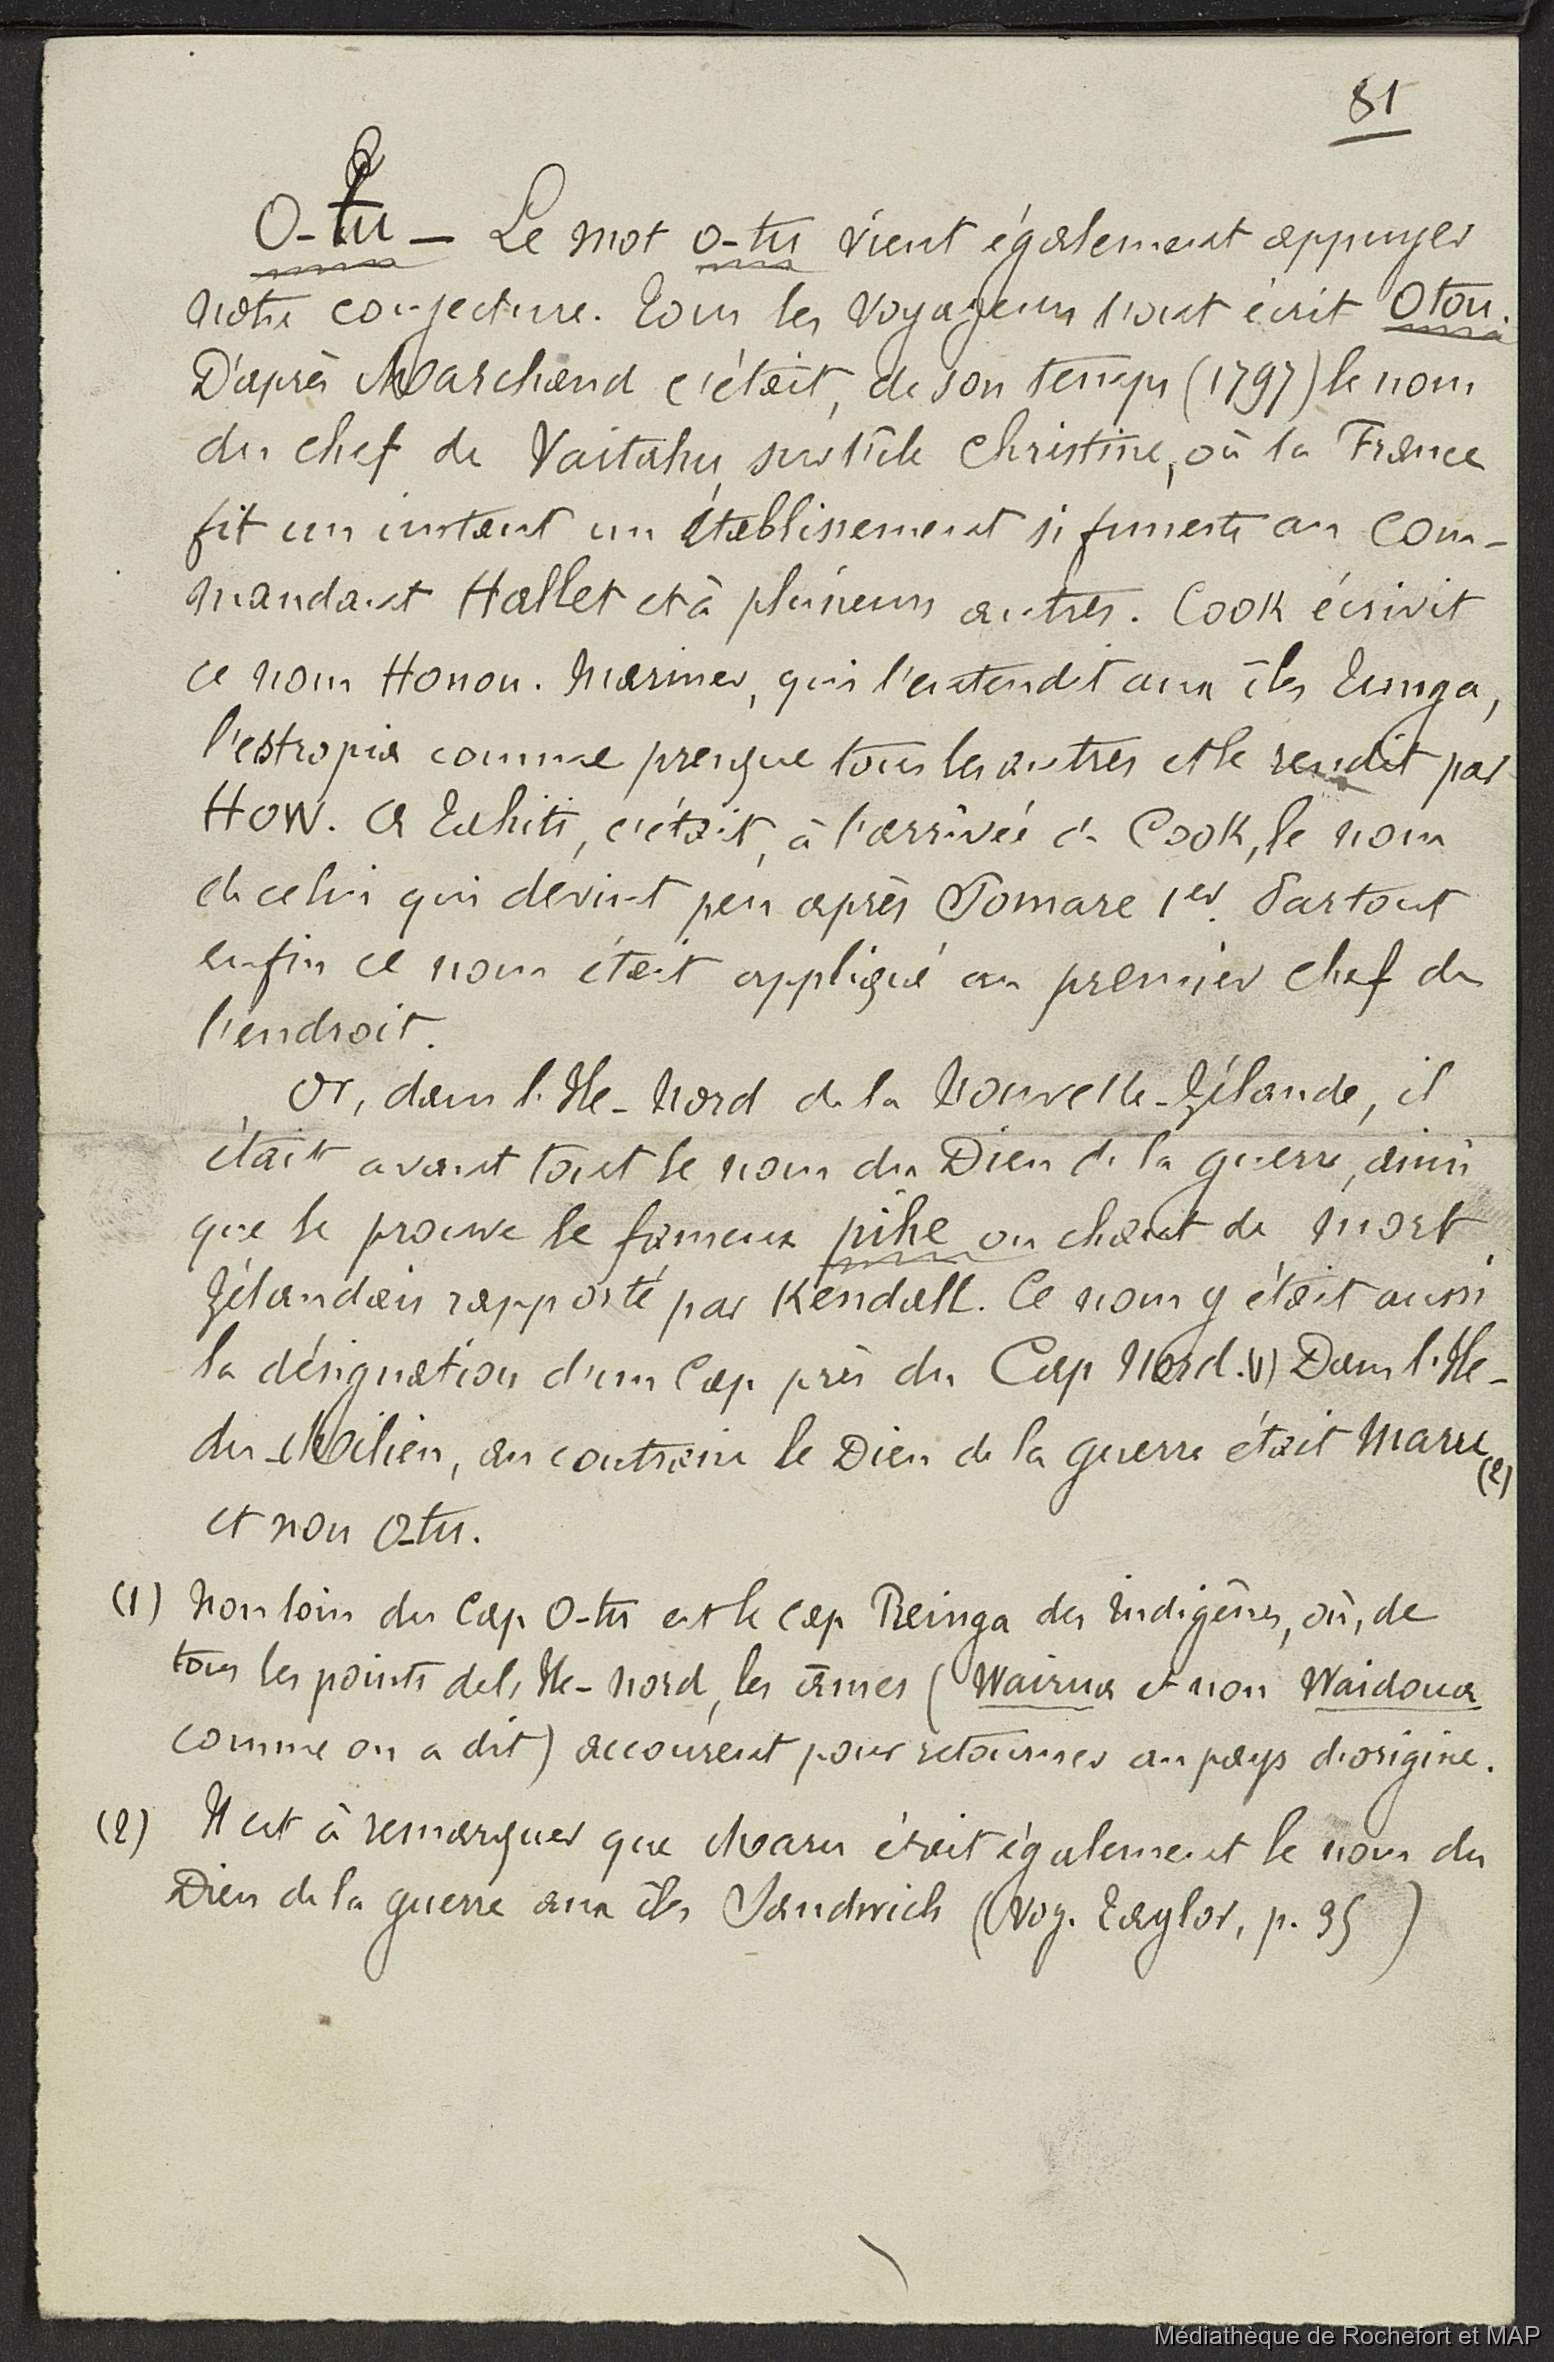 81
O-tu — Le mot o-tu vient également appuyer
notre conjecture. Tous les voyageurs l'ont écrit Otou.
D'après Marchand c'était, de son temps (1797) le nom
du chef de Vaitahu, sur l'île Christine, où la France
fit un instant un établissement si funeste au Com-
mandant Hallet et à plusieurs autres. Cook écrivit
ce nom Honou. Mariner, qui l'entendit aux îles Tunga,
l'estropia comme presque tous les autres et le rendit par
How. A Tahiti, c'était, à l'arrivée de Cook, le nom
de celui qui devint peu après Pomare 1er. Partout
enfin ce nom était appliqué au premier chef de
l'endroit.
Or, dans l'Ile-Nord de la Nouvelle-Zélande, il
était avant tout le nom du Dieu de la guerre, ainsi
que le prouve le fameux pihe ou chant de mort
Zélandais rapporté par Kendall. Ce nom y était aussi
la désignation d'un Cap près du Cap Nord. (1) Dans l'Ile-
du-Milieu, au contraire le Dieu de la guerre était Maru (2)
et non O-tu.
(1) Non loin du Cap O-tu est le cap Reinga des indigènes, où, de
tous les points de l'Ile-Nord, les âmes (Wairua et non Waidoua
comme on a dit) accourent pour retourner au pays d'origine.
(2) Il est à remarquer que Maru était également le nom du
Dieu de la guerre aux îles Sandwich (Voy. Taylor, p. 35)
Médiathèque de Rochefort et MAP